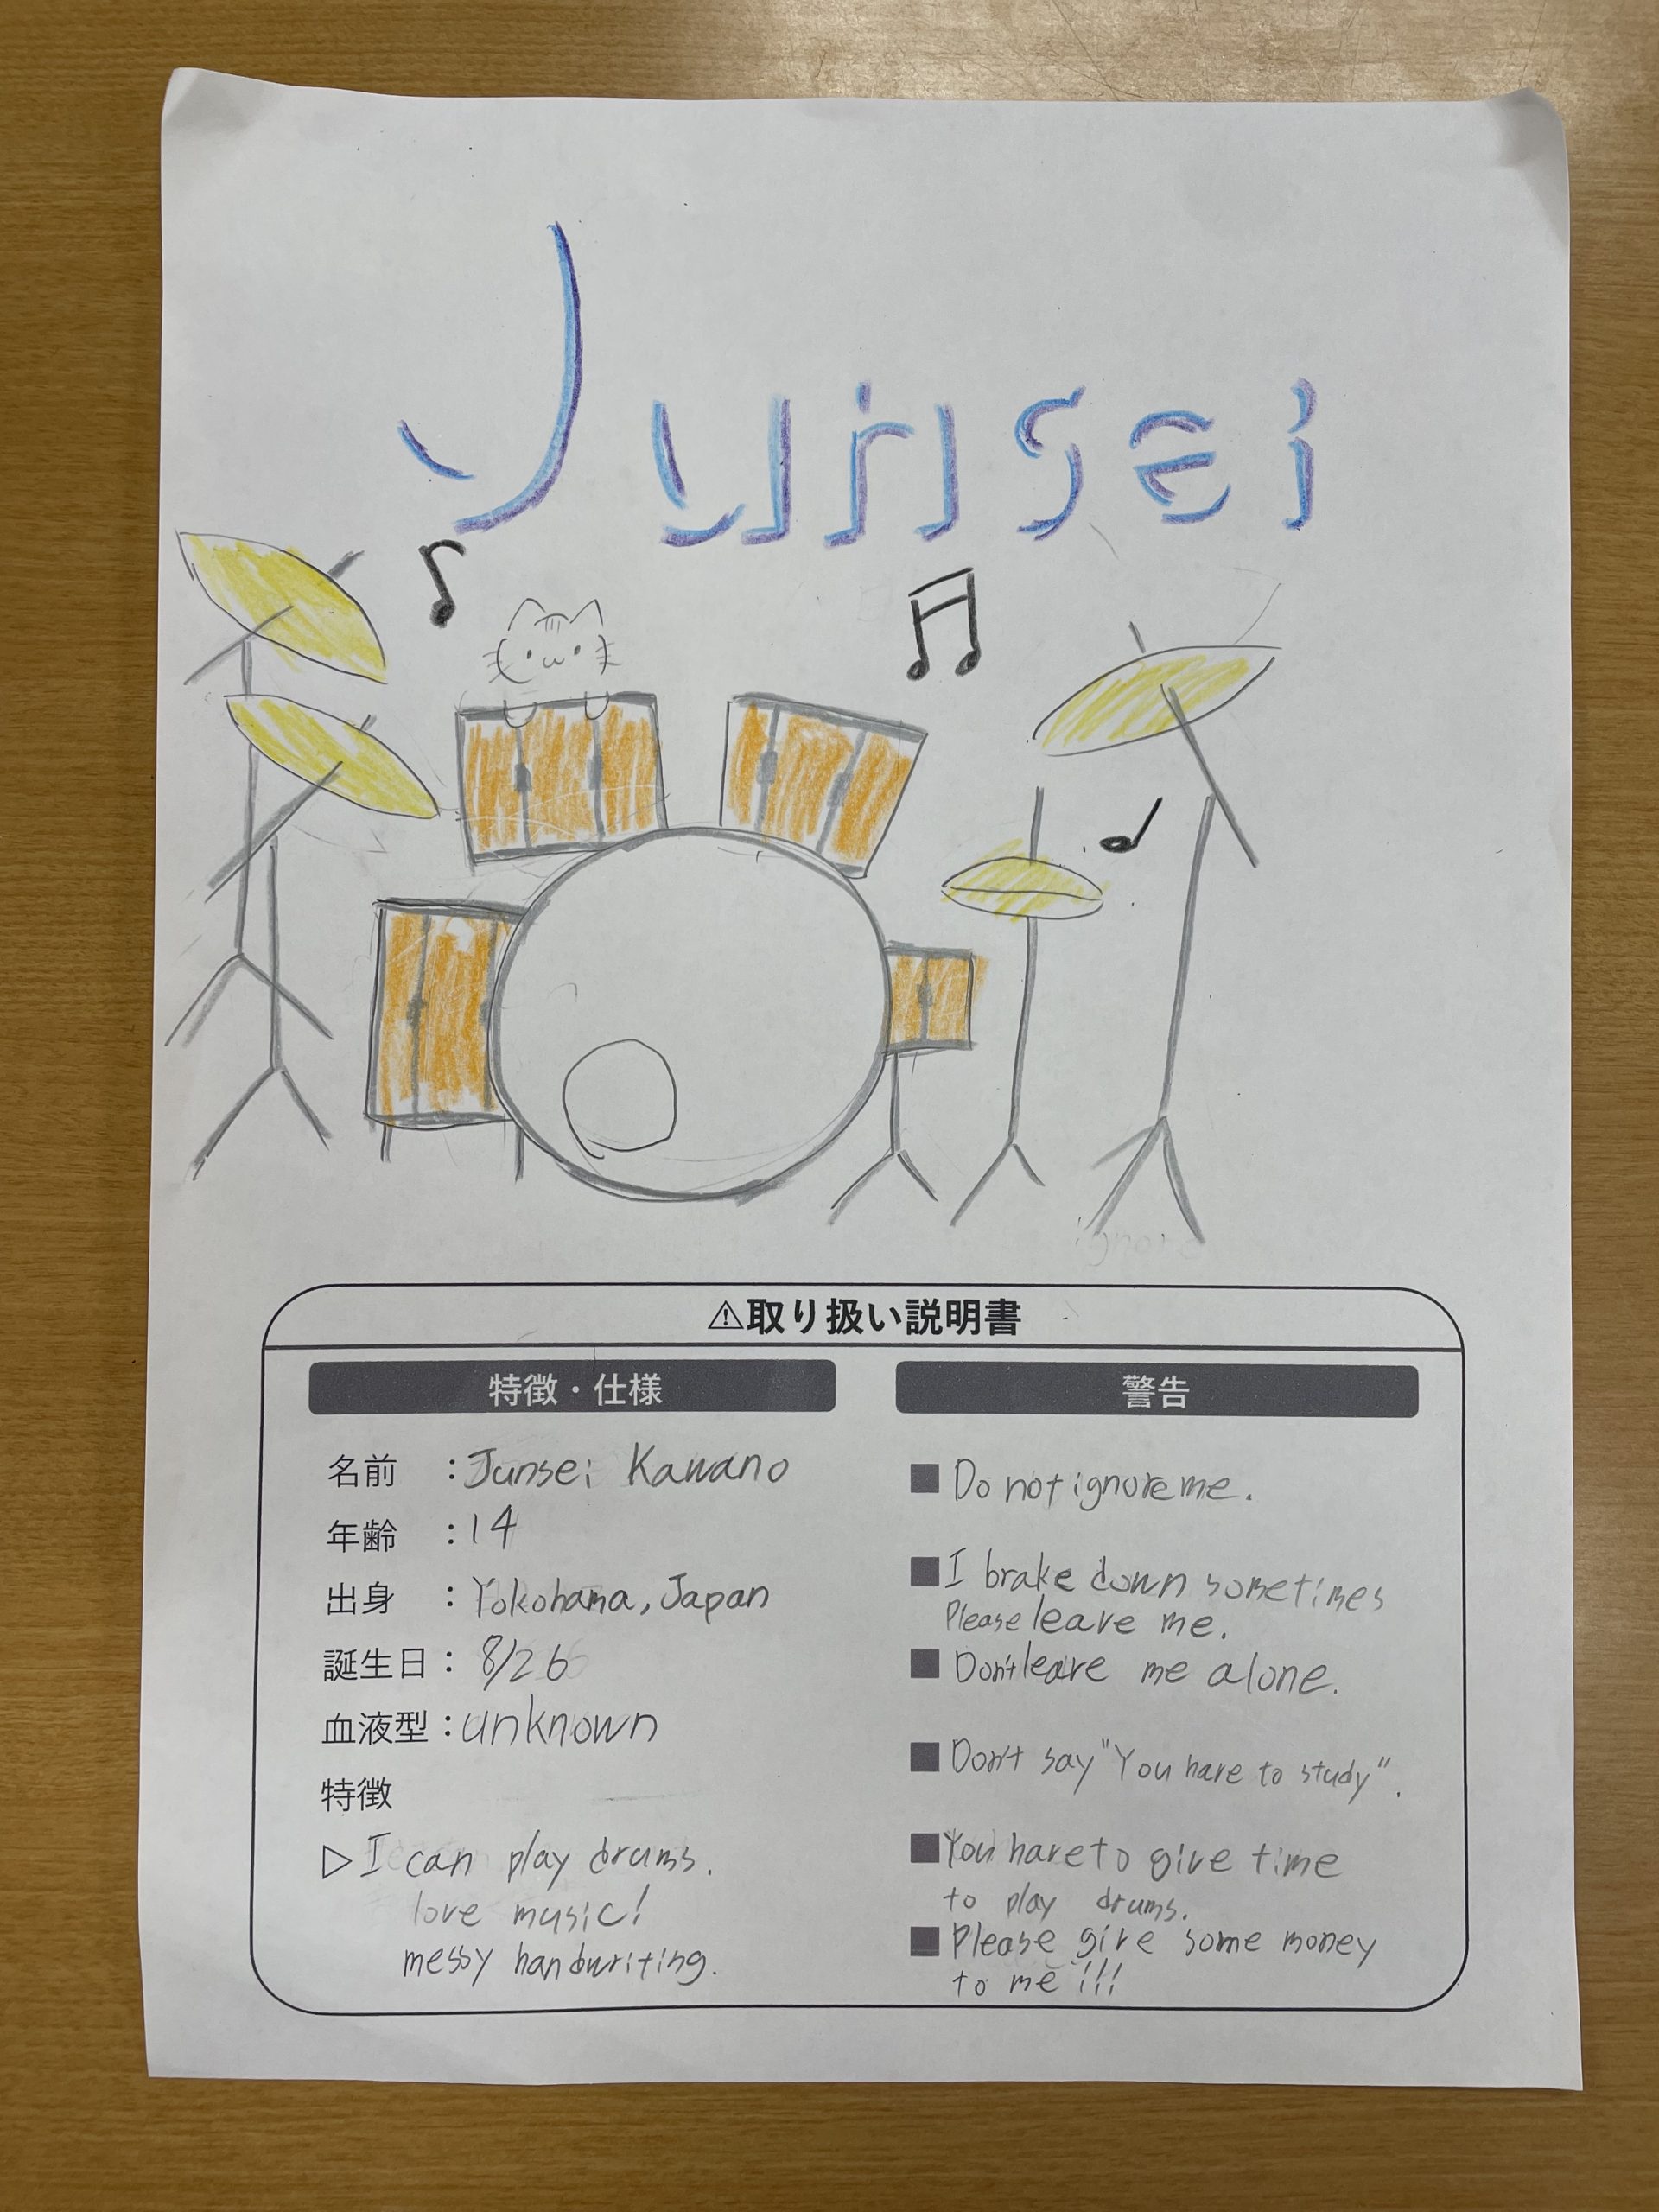 Junsei
⚠取り扱い説明書
特徴・仕様
名前 : Junsei Kawano
年齢 : 14
出身 : Yokohama, Japan
誕生日 : 8/26
血液型 : unknown
特徴
▷ I can play drums.
love music!
messy handwriting.
警告
■ Do not ignore me.
■ I brake down sometimes
Please leave me.
■ Don't leave me alone.
■ Don't say "You have to study".
■ You have to give time
to play drums.
■ Please give some money
to me !!!